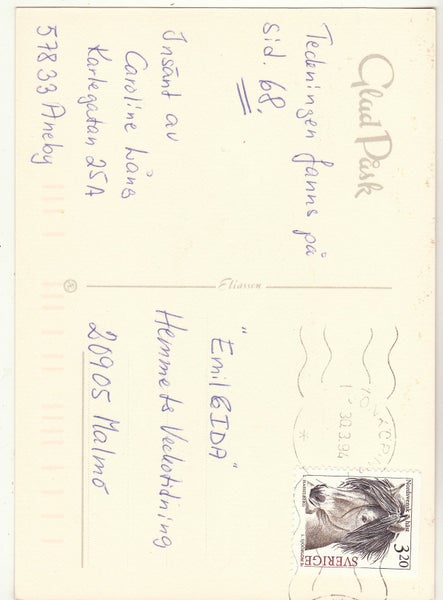 Glad Påsk
Tedeningen fanns på
sid. 68.
Insänt av
Caroline Lång
Karlegatan 25A
57833 Aneby
Eliasson
"Emil & IDA"
Hemmets Veckotidning
20905 Malmö
30.3.94
Nordsvensk häst
3.20
SVERIGE